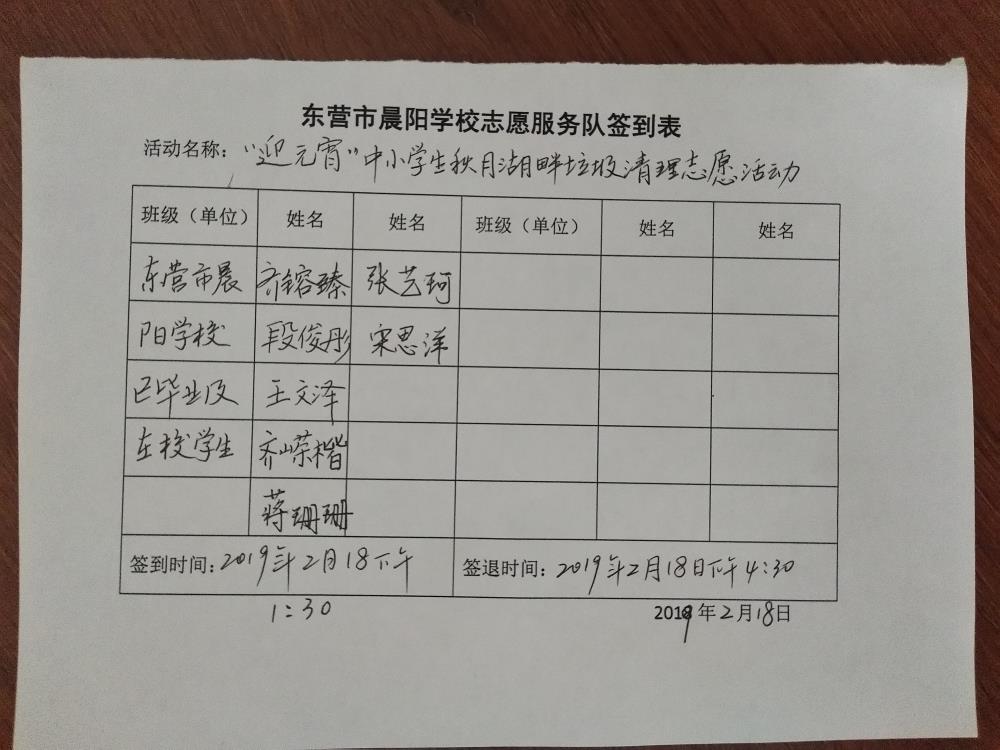 东营市晨阳学校志愿服务队签到表
活动名称："迎元宵"中小学生秋月湖畔垃圾清理志愿活动
班级（单位） 姓名 姓名 班级（单位） 姓名 姓名
东营市晨 齐镕臻 张艺珂
阳学校 段俊彤 宋思洋
已毕业及 王文泽
在校学生 齐嵘楷
蒋珊珊
签到时间：2019年2月18下午 签退时间：2019年2月18日下午4:30
1:30 2019年2月18日